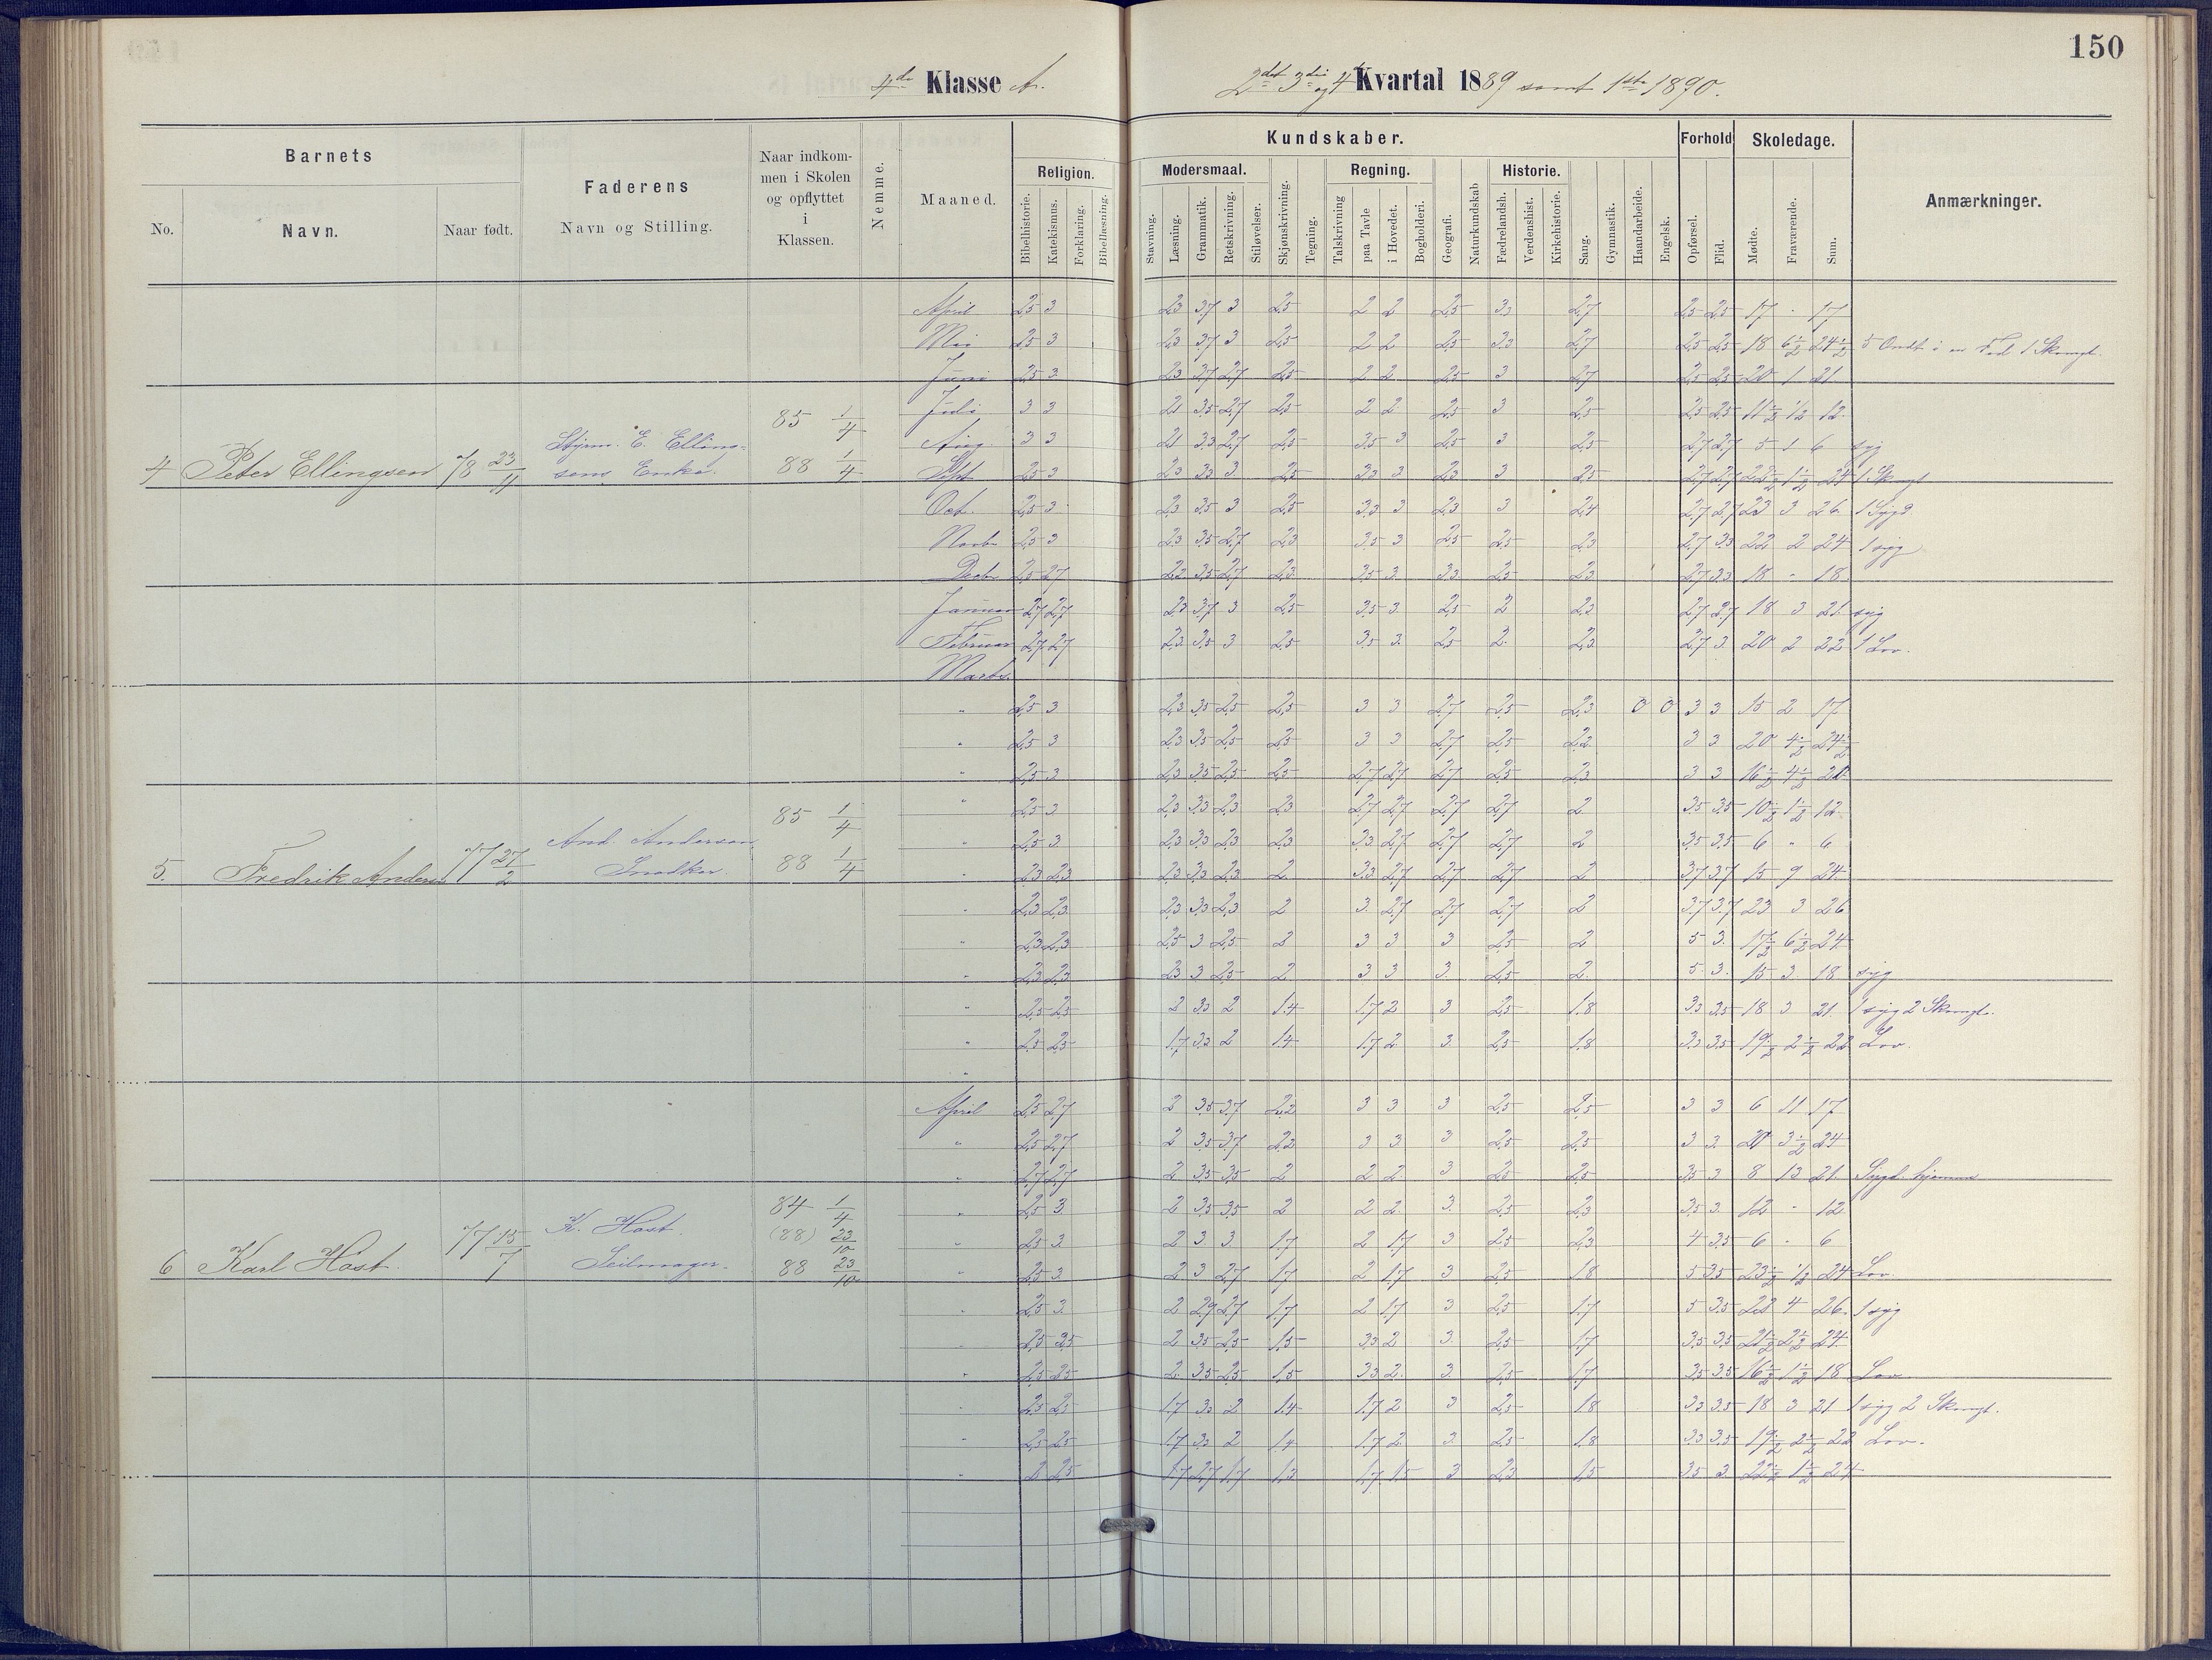 150
4de Klasse A.
2det 3die og 4de Kvartal 1889 samt 1ste 1890.
Barnets
No.
Navn.
Naar født.
Faderens
Navn og Stilling.
Naar indkom-
men i Skolen
og opflyttet
i
Klassen.
Nemme.
Maaned.
Kundskaber.
Religion.
Bibelhistorie.
Katekismus.
Forklaring.
Bibellæsning.
Modersmaal.
Stavning.
Læsning.
Grammatik.
Retskrivning.
Stiløvelser.
Skjønskrivning.
Tegning.
Regning.
Talskrivning
paa Tavle
i Hovedet.
Bogholderi.
Geografi.
Naturkundskab
Historie.
Fædrelandsh.
Verdenshist.
Kirkehistorie.
Sang.
Gymnastik.
Haandarbeide.
Engelsk.
Forhold
Opførsel.
Flid.
Skoledage.
Mødte.
Fraværende.
Sum.
Anmærkninger.
4 Peter Ellingsen 78 23/11
Styrm. E. Elling-
sens Enke.
85 1/4
88 1/4
April 2,5 3 2,3 3,7 3 2,5 2 2 2,5 3,3 2,7 2,5 2,5 17 - 17
Mai 2,5 3 2,3 3,7 3 2,5 2 2 2,5 3,3 2,7 2,5 2,5 18 6½ 24½ 5 Ondt i en Fod 1 Skomgl.
Juni 2,5 3 2,3 3,7 2,7 2,5 2 2 2,5 3 2,7 2,5 2,5 20 1 21
Juli 3 3 2,1 3,5 2,7 2,5 2 2 2,5 3 2,5 2,5 2,5 11½ ½ 12
Aug. 3 3 2,1 3,3 2,7 2,5 3,5 3 2,5 3 2,5 2,7 2,7 5 1 6 syg
Sept 2,5 3 2,3 3,3 3 2,5 3,3 3 2,3 3 2,5 2,7 2,7 22½ 1½ 24 1 Skomgl
Oct. 2,5 3 2,3 3,5 3 2,5 3,3 3 2,3 3 2,4 2,7 2,7 23 3 26 1 Syg
Novbr 2,5 3 2,3 3,5 2,7 2,3 3,5 3 2,5 2,5 2,3 2,7 3,3 22 2 24 1 syg
Decbr 2,5 2,7 2,2 3,5 2,7 2,3 3,5 3 3,3 2,5 2,3 2,7 3,3 18 - 18
Januar 2,7 2,7 2,3 3,7 3 2,5 3,5 3 2,5 2 2,3 2,7 2,7 18 3 21 syg
Februar 2,7 2,7 2,3 3,5 3 2,5 3,5 3 2,5 2 2,3 2,7 3 20 2 22 1 Lov.
Marts.
5. Fredrik Andersen 77 27/2
And. Andersen
Snedker
85 1/4
88 1/4
" 2,5 3 2,3 3,5 2,5 2,5 3 3 2,7 2,5 2,3 0 0 3 3 15 2 17
" 2,5 3 2,3 3,5 2,5 2,5 3 3 2,7 2,5 2,2 3 3 20 4½ 24½
" 2,5 3 2,3 3,5 2,5 2,5 2,7 2,7 2,7 2,5 2,3 3 3 16½ 4½ 21
" 2,5 3 2,3 3,3 2,3 2,3 2,7 2,7 2,7 2,7 2 3,5 3,5 10½ 1½ 12
" 2,5 3 2,3 3,3 2,3 2,3 3,3 2,7 2,7 2,7 2 3,5 3,5 6 " 6
" 2,3 2,3 2,3 3,3 2,3 2 3,3 2,7 2,7 2,7 2 3,7 3,7 15 9 24
" 2,3 2,3 2,3 3,3 2,3 2 3 2,7 2,7 2,7 2 3,7 3,7 23 3 26
" 2,3 2,3 2,5 3 2,5 2 3 3 3 2,5 2 5 3 17½ 6½ 24
" 2,3 2,3 2,3 3 2,5 2 3 3 3 2,5 2 5 3 15 3 18 syg
" 2,5 2,5 2 3,3 2 1,4 1,7 2 3 2,5 1,8 3,3 3,5 18 3 21 1 syg 2 Skomgl.
" 2,5 2,5 1,7 3,3 2 1,4 1,7 2 3 2,5 1,8 3,3 3,5 19½ 2½ 22 Lov.
"
6 Karl Høst 77 15/7
K. Høst.
Seilmager.
84 1/4
(88) 23/10
88 23/10
April 2,5 2,7 2 3,5 3,7 2,2 3 3 3 2,5 2,5 3 3 6 11 17
" 2,5 2,7 2 3,5 3,7 2,2 3 3 3 2,5 2,5 3 3 21 3½ 24
" 2,7 2,7 2 3,5 3,5 2 2 2 3 2,5 2,5 3,5 3 8 13 21 Sygd. hjemme
" 2,5 3 2 3,5 3,5 2 2 2 3 2,5 2,3 3,5 3 12 - 12
" 2,5 3 2 3 3 1,7 2 1,7 3 2,5 2,3 4 3,5 6 - 6
" 2,5 3 2 3 2,7 1,7 2 1,7 3 2,5 1,8 5 3,5 23½ ½ 24 Lov.
" 2,5 3 2 2,9 2,7 1,7 2 1,7 3 2,5 1,7 5 3,5 22 4 26 1 syg
" 2,5 2,5 2 3,5 2,5 1,5 3,3 2 3 2,5 1,7 3,5 3,5 21½ 2½ 24
" 2,5 2,5 2 3,5 2,5 1,5 3,3 2 3 2,5 1,7 3,5 3,5 16½ 1½ 18 Lov
" 2,5 2,5 1,7 3,3 2 1,4 1,7 2 3 2,5 1,8 3,3 3,5 18 3 21 1 syg 2 Skomgl.
" 2,5 2,5 1,7 3,3 2 1,4 1,7 2 3 2,5 1,8 3,3 3,5 19½ 2½ 22 Lov.
" 2 2,5 1,7 2,7 1,7 1,3 1,7 1,5 3 2,3 1,5 3,5 3 22½ 1½ 24